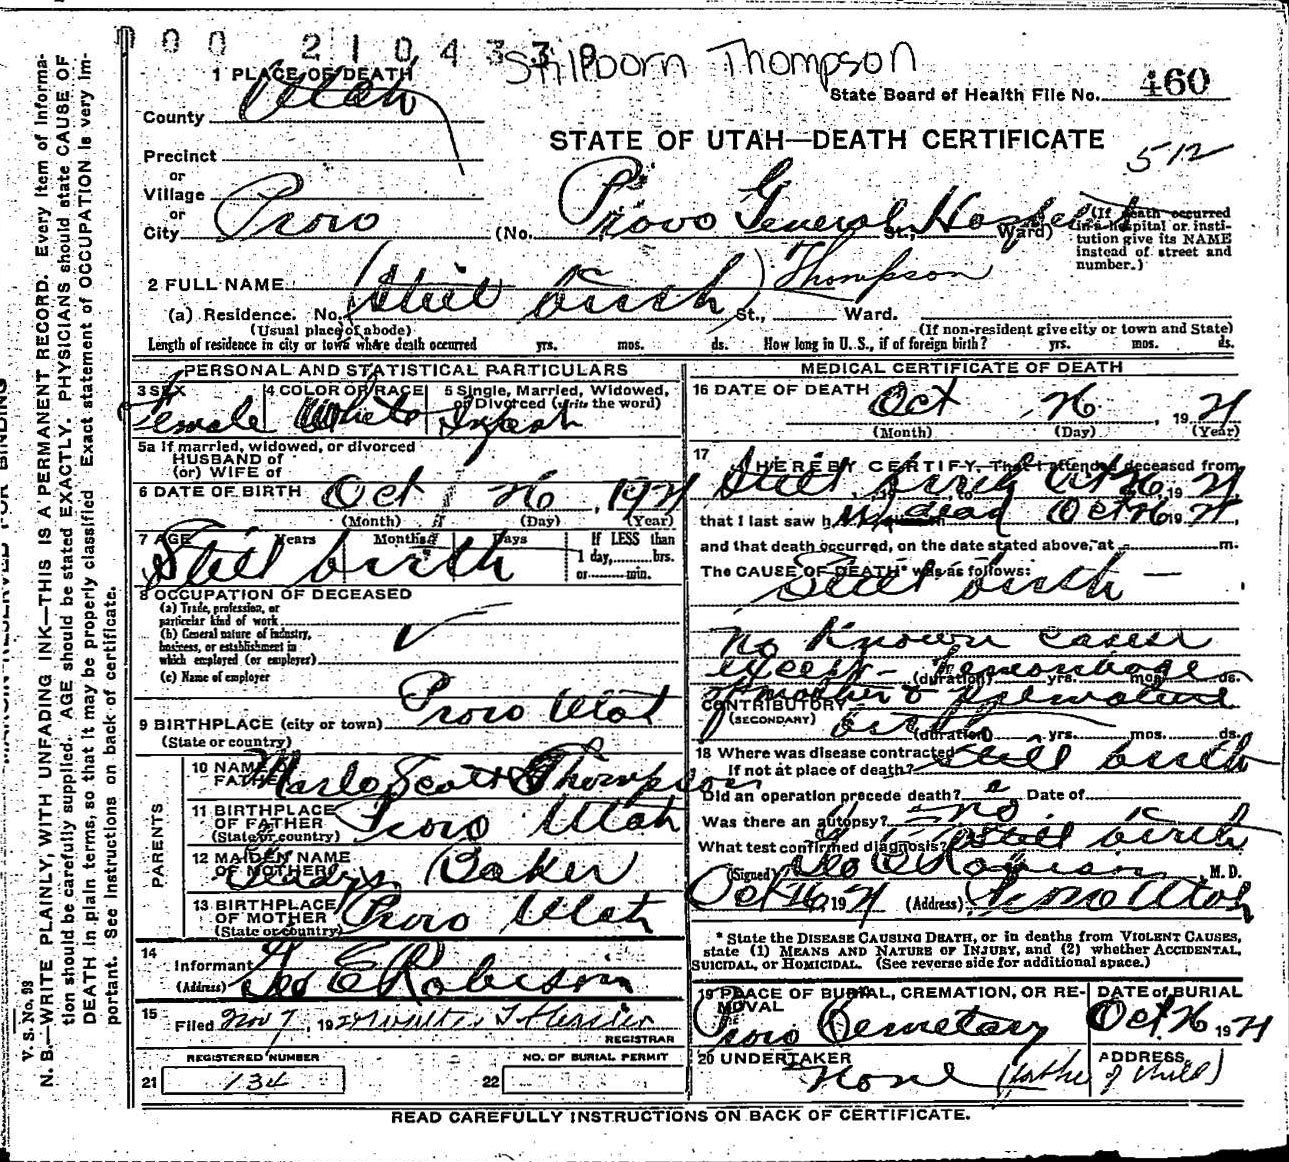 000 210433
Stillborn Thompson
State Board of Health File No. 460
1 PLACE OF DEATH
County Utah
STATE OF UTAH—DEATH CERTIFICATE
512
Precinct
or
Village
or
City Provo (No. Provo General Hospital St., Ward)
(If death occurred in a hospital or institution give its NAME instead of street and number.)
2 FULL NAME (Still birth) Thompson
(a) Residence. No. St., Ward.
(Usual place of abode) (If non-resident give city or town and State)
Length of residence in city or town where death occurred yrs. mos. ds. How long in U. S., if of foreign birth? yrs. mos. ds.
PERSONAL AND STATISTICAL PARTICULARS
3 SEX 4 COLOR OR RACE 5 Single, Married, Widowed, or Divorced (write the word)
Female White Infant
5a If married, widowed, or divorced
HUSBAND of
(or) WIFE of
6 DATE OF BIRTH Oct 26, 1921
(Month) (Day) (Year)
7 AGE Years Months Days If LESS than
1 day, hrs.
or min.
Still birth
8 OCCUPATION OF DECEASED
(a) Trade, profession, or
particular kind of work
(b) General nature of industry,
business, or establishment in
which employed (or employer)
(c) Name of employer
9 BIRTHPLACE (city or town) Provo Utah
(State or country)
PARENTS
10 NAME OF FATHER Scott Thompson
11 BIRTHPLACE OF FATHER Provo Utah
(State or country)
12 MAIDEN NAME OF MOTHER Gladys Baker
13 BIRTHPLACE OF MOTHER Provo Utah
(State or country)
14 Informant Geo E Robison
(Address)
15 Filed Nov 7, 192
REGISTRAR
REGISTERED NUMBER NO. OF BURIAL PERMIT
21 134 22
MEDICAL CERTIFICATE OF DEATH
16 DATE OF DEATH Oct 26, 1921
(Month) (Day) (Year)
17 I HEREBY CERTIFY, That I attended deceased from
Still birth Oct 26, 1921
that I last saw h dead Oct 26 1921,
and that death occurred, on the date stated above, at m.
The CAUSE OF DEATH* was as follows:
Still birth —
No known cause
except — hemorrhage
(duration) yrs. mos. ds.
of mother & premature
CONTRIBUTORY
(SECONDARY) birth
(duration) yrs. mos. ds.
18 Where was disease contracted
If not at place of death? Still birth
Did an operation precede death? Date of
Was there an autopsy? no
What test confirmed diagnosis? Still birth
(Signed) Geo E Robison, M. D.
Oct 26, 1921 (Address) Provo Utah
* State the DISEASE CAUSING DEATH, or in deaths from VIOLENT CAUSES,
state (1) MEANS AND NATURE OF INJURY, and (2) whether ACCIDENTAL,
SUICIDAL, or HOMICIDAL. (See reverse side for additional space.)
19 PLACE OF BURIAL, CREMATION, OR REMOVAL DATE of BURIAL
Provo Cemetary Oct. 26 1921
20 UNDERTAKER ADDRESS
None (father of child)
READ CAREFULLY INSTRUCTIONS ON BACK OF CERTIFICATE.
V. S. No. 98
N. B.—WRITE PLAINLY, WITH UNFADING INK—THIS IS A PERMANENT RECORD. Every item of informa-
tion should be carefully supplied. AGE should be stated EXACTLY. PHYSICIANS should state CAUSE OF
DEATH in plain terms, so that it may be properly classified. Exact statement of OCCUPATION is very im-
portant. See instructions on back of certificate.